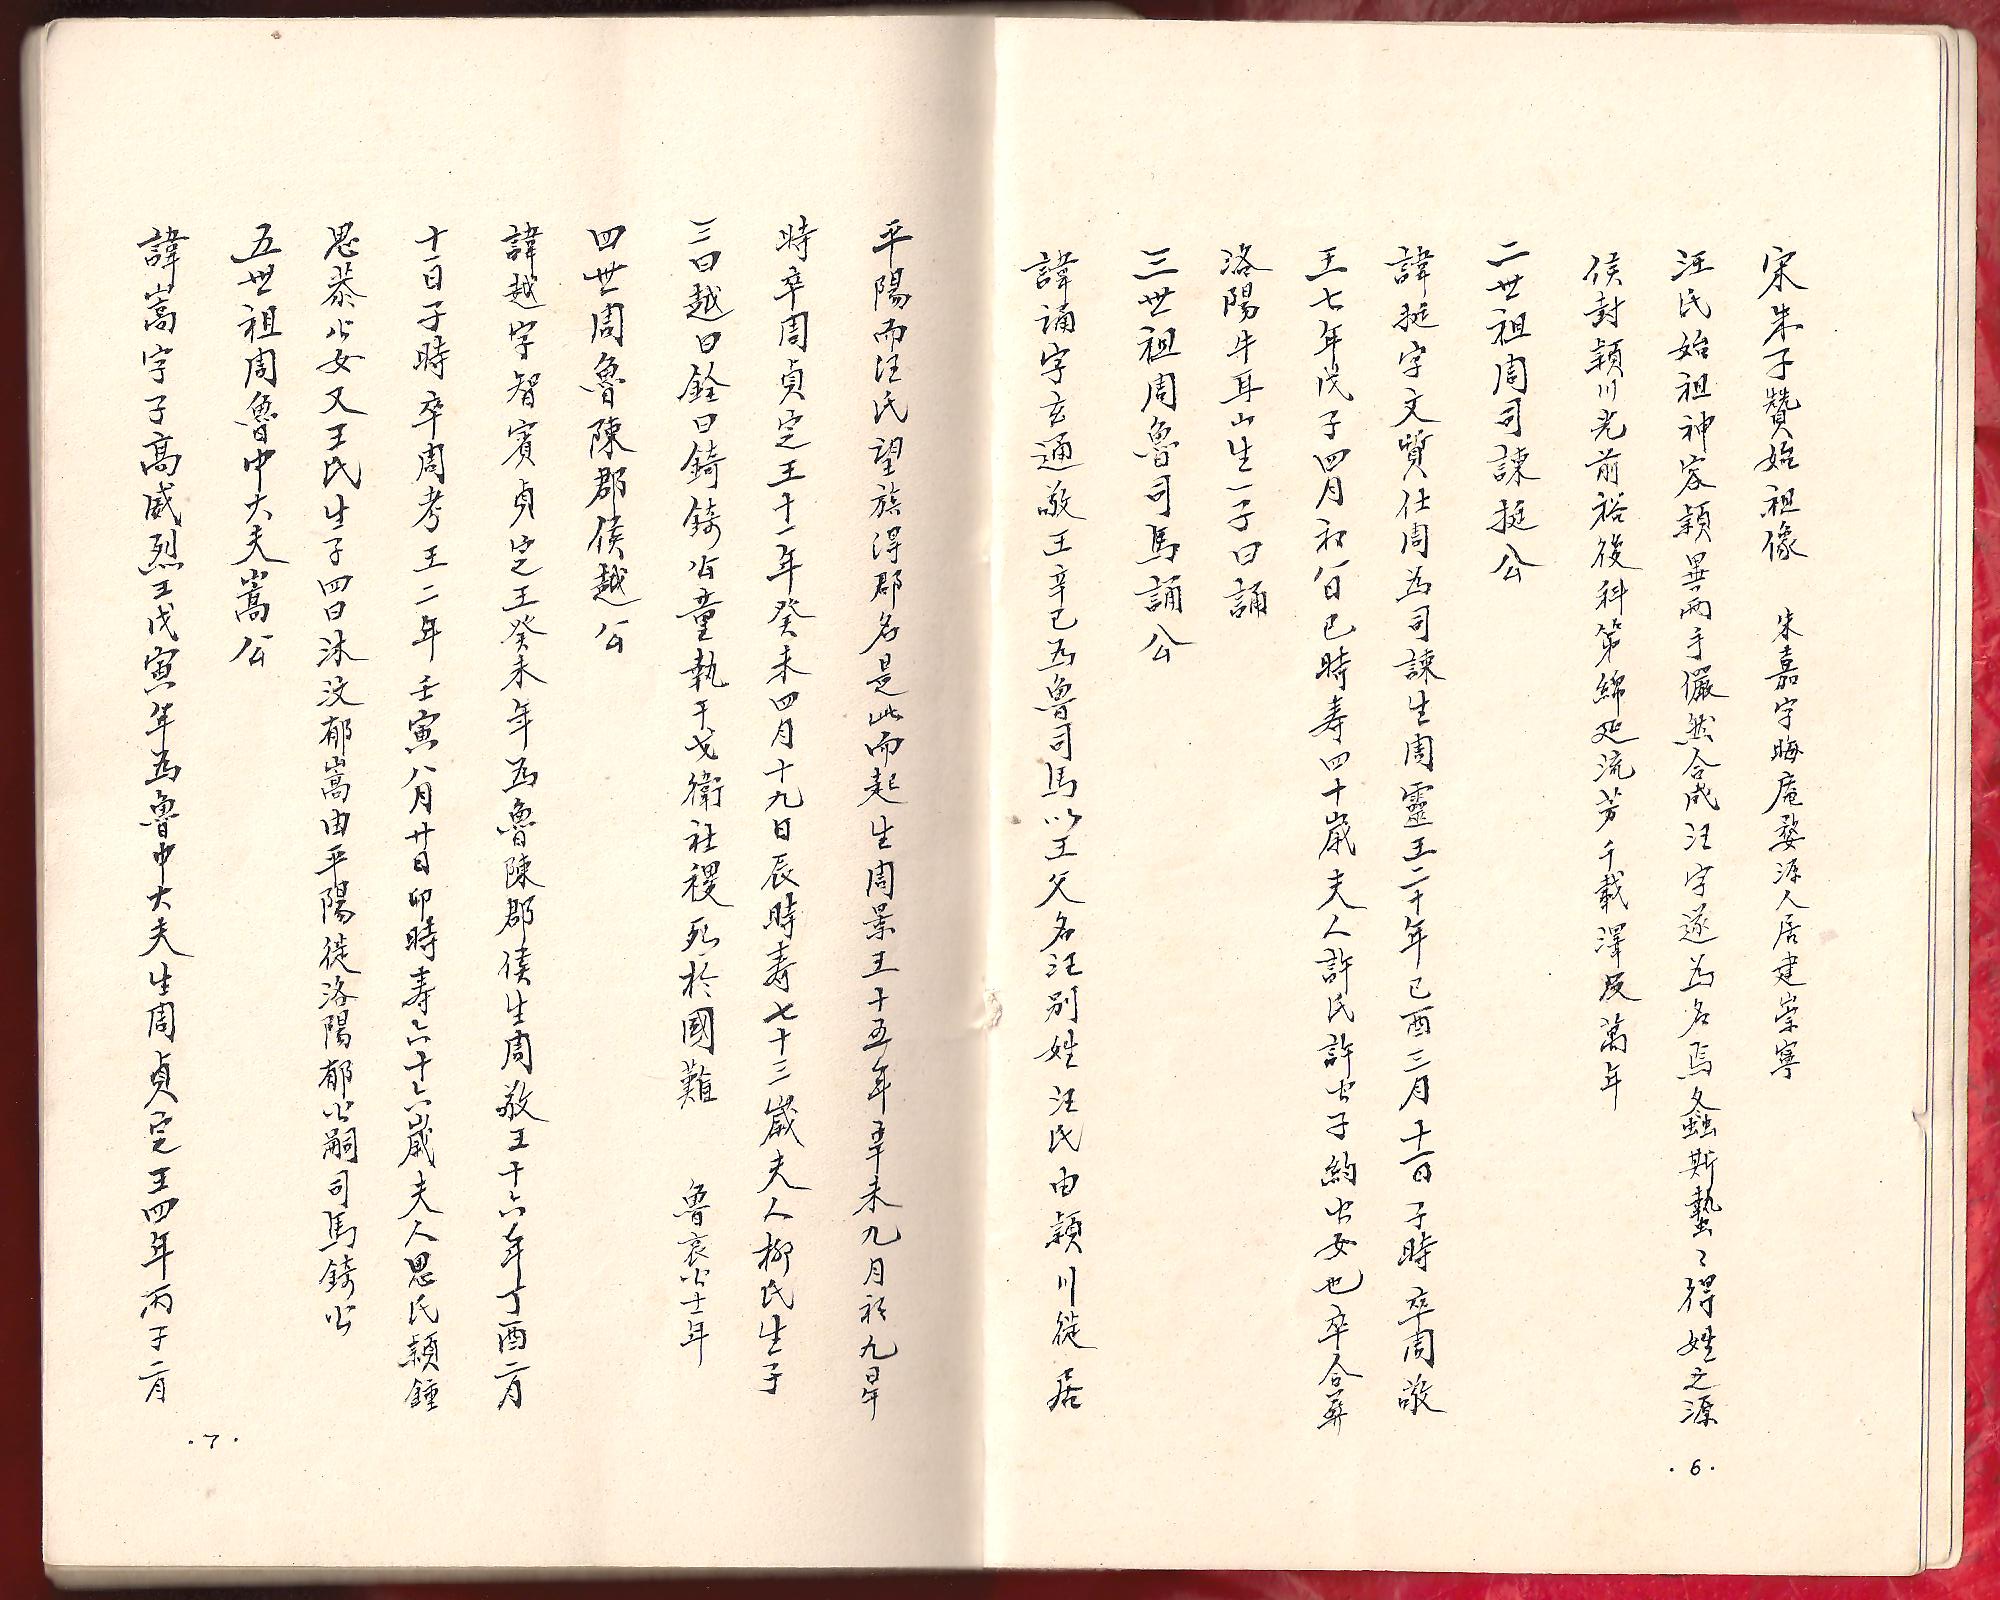 宋朱子贊始祖像 朱嘉字晦庵婺源人居建崇寧
汪氏始祖神容穎異兩手儼然合成汪字遂為名焉螽斯蟄々得姓之源
侯封穎川光前裕後科第綿延流芳千載澤及萬年
二世祖周司諫挺公
諱挺字文質仕周為司諫生周靈王二十年己酉三月十一日子時卒周敬
王七年戊子四月初八日巳時寿四十歲夫人許氏許公子約公女也卒合葬
洛陽牛耳山生一子曰誦
三世祖周魯司馬誦公
諱誦字玄通敬王辛巳為魯司馬以王父名汪別姓汪氏由穎川徙居
·6·
平陽而汪氏望族得郡名是此而起生周景王十五年辛未九月初九日午
時卒周貞定王十一年癸未四月十九日辰時寿七十三歲夫人柳氏生子
三曰越曰銓曰錡錡公童執干戈衛社稷死於國難 魯哀公十一年
四世周魯陳郡侯越公
諱越字智賓貞定王癸未年為魯陳郡侯生周敬王十六年丁酉二月
十一日子時卒周考王二年壬寅八月廿日卯時寿六十六歲夫人思氏穎鍾
思恭公女又王氏生子四曰沐汶郁嵩由平陽徙洛陽郁公嗣司馬錡公
五世祖周魯中大夫嵩公
諱嵩字子高威烈王戊寅年為魯中大夫生周貞定王四年丙子二月
·7·